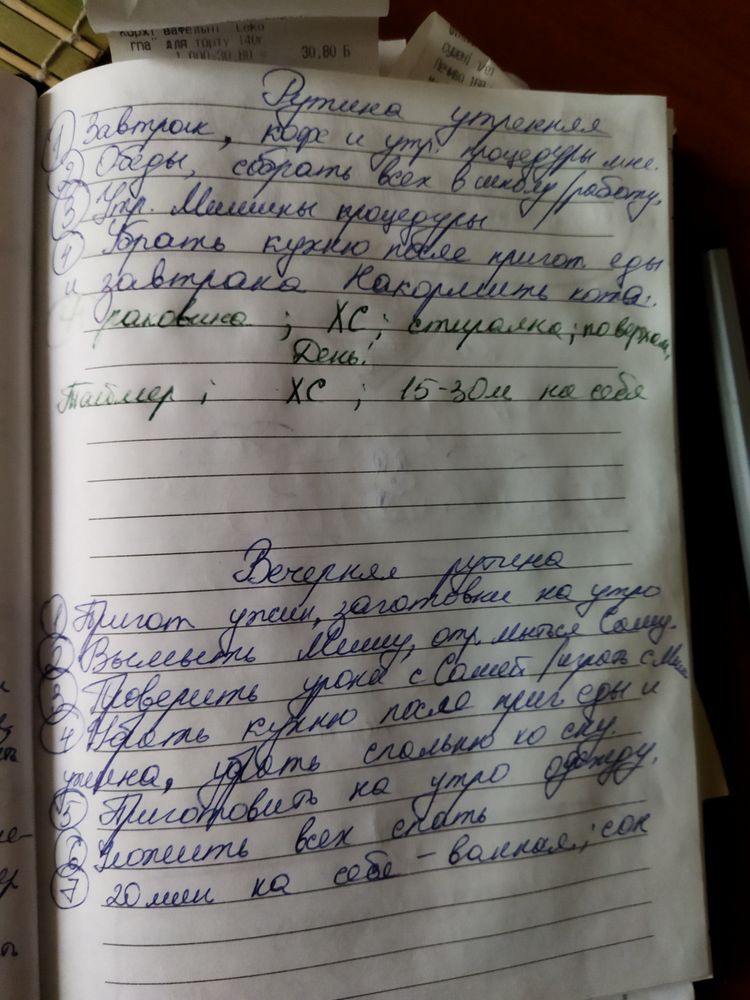 коржі вафельні Leko
гпа" для торту 140г
1.000×30.80 = 30,80 Б
сушені
Печиво
Рутина утренняя
1 Завтрак, кофе и утр. процедуры мне.
2 Обеды, собрать всех в школу/работу.
3 Утр. Мишины процедуры
4 Убрать кухню после пригот. еды
и завтрака Накормить кота.
раковина ; ХС; стиралка; поверхн.
День:
Таймер ; ХС ; 15-30м на себя
Вечерняя рутина
1 Пригот ужин, заготовки на утро
2 Вымыть Мишу, отпр. мыться Сашу.
3 Проверить уроки с Сашей /играть с Миш
4 Убрать кухню после приг еды и
ужина, убрать спальню ко сну.
5 Приготовить на утро одежду.
6 Уложить всех спать
7 20мин на себя - ванная; сон